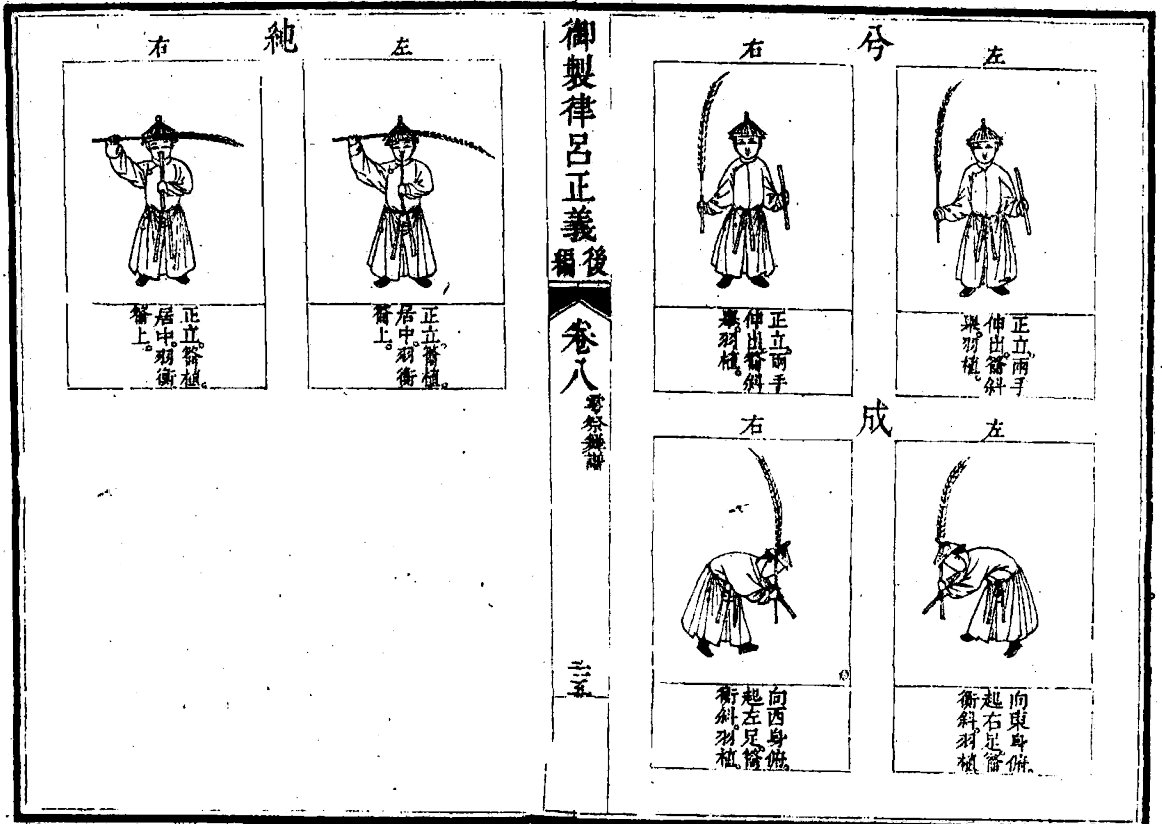 兮
左
正立。兩手
伸出。籥斜
舉。羽植。
右
正立。兩手
伸出。籥斜
舉。羽植。
成
左
向東身俯。
起右足。籥
衡斜。羽植。
右
向西身俯。
起左足。籥
衡斜。羽植。
御製律呂正義後編
卷八
雩祭舞譜
純
左
正立。籥植。
居中。羽衡
籥上。
右
正立。籥植。
居中。羽衡
籥上。